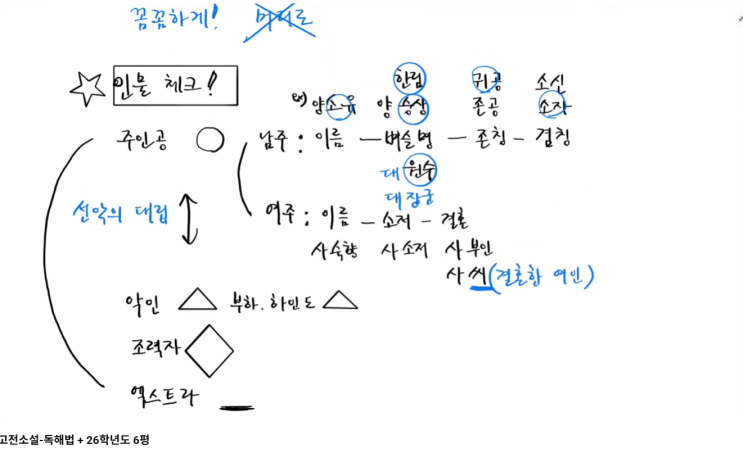 꼼꼼하게!
인물 체크!
한림 귀공 소신
ex) 양소유 양승상 존공 소자
주인공 남주 : 이름 - 벼슬명 - 존칭 - 겸칭
대원수
대장군
선악의 대립
여주 : 이름 - 소저 - 결혼
사숙향 사소저 사부인
사씨(결혼한 여인)
악인 부하. 하인도
조력자
엑스트라
고전소설-독해법 + 26학년도 6평